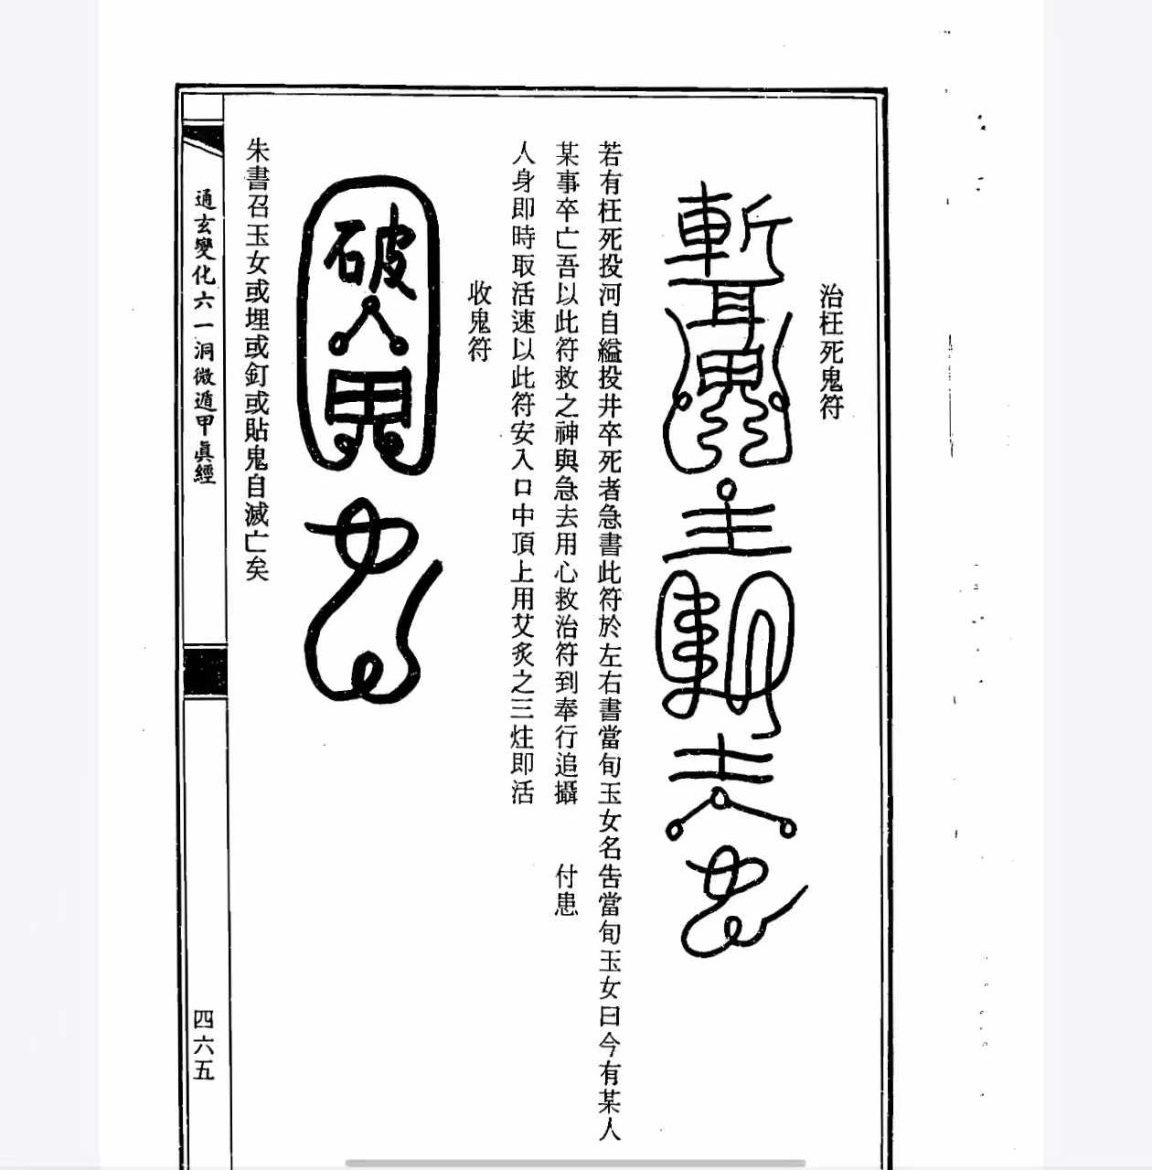 治枉死鬼符
若有枉死投河自縊投井卒死者急書此符於左右書當旬玉女名告當旬玉女曰今有某人
某事卒亡吾以此符救之神與急去用心救治符到奉行追攝　付患
人身即時取活速以此符安入口中頂上用艾炙之三炷即活
收鬼符
破
朱書召玉女或埋或釘或貼鬼自滅亡矣
通玄變化六一洞微遁甲眞經
四六五